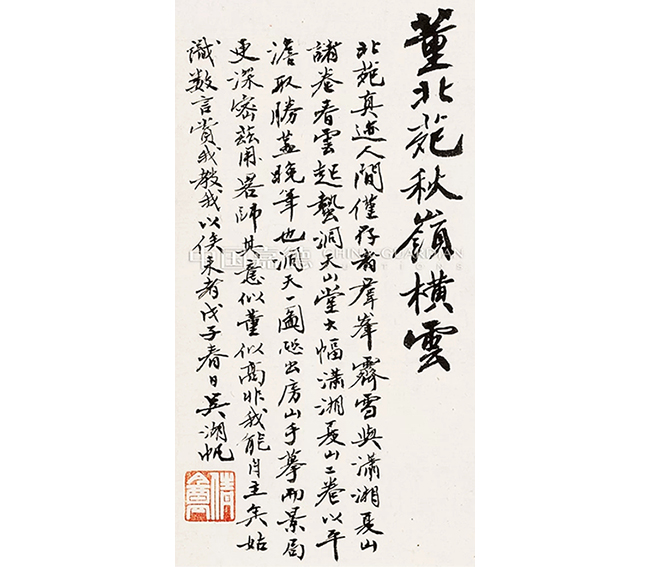 董北苑秋嶺橫雲
北苑真迹人間僅存者羣峯霽雪與瀟湘夏山
諸卷春雲起蟄洞天山堂大幅瀟湘夏山二卷以平
澹取勝蓋晚年也洞天一圖迺出房山手摹而景局
更深密茲用畧師其意似董似高非我能自主矣姑
識数言賞我教我以俟来者戊子春日吳湖帆
倩盦
中国嘉德 CHINA GUARDIAN